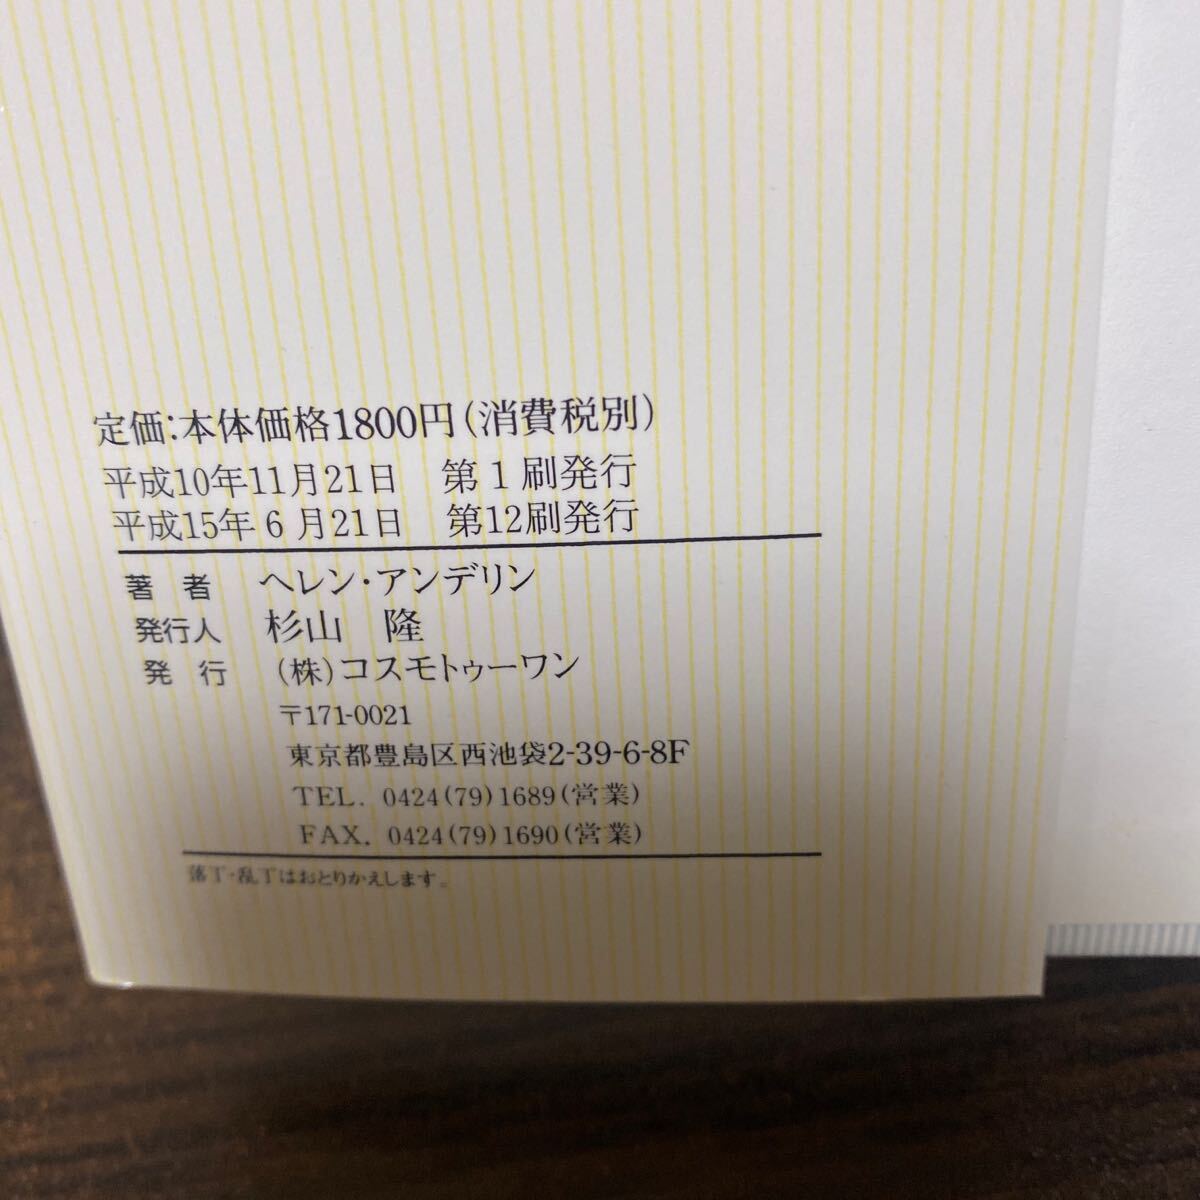 定価:本体価格1800円(消費税別)
平成10年11月21日 第1刷発行
平成15年6月21日 第12刷発行
著者 ヘレン・アンデリン
発行人 杉山 隆
発行 (株)コスモトゥーワン
〒171-0021
東京都豊島区西池袋2-39-6-8F
TEL. 0424(79)1689(営業)
FAX. 0424(79)1690(営業)
落丁・乱丁はおとりかえします。